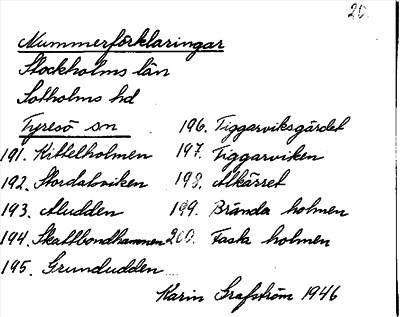 20.
Nummerförklaringar
Stockholms län
Sotholms hd
Tyresö sn
191. Kittelholmen
192. Stordalsviken
193. Aludden
194. Skattbondhammen
195. Grundudden
196. Tiggarviksgärdet
197. Tiggarviken
198. Alkärret
199. Brända holmen
200. Faska holmen
Karin Grafström 1946